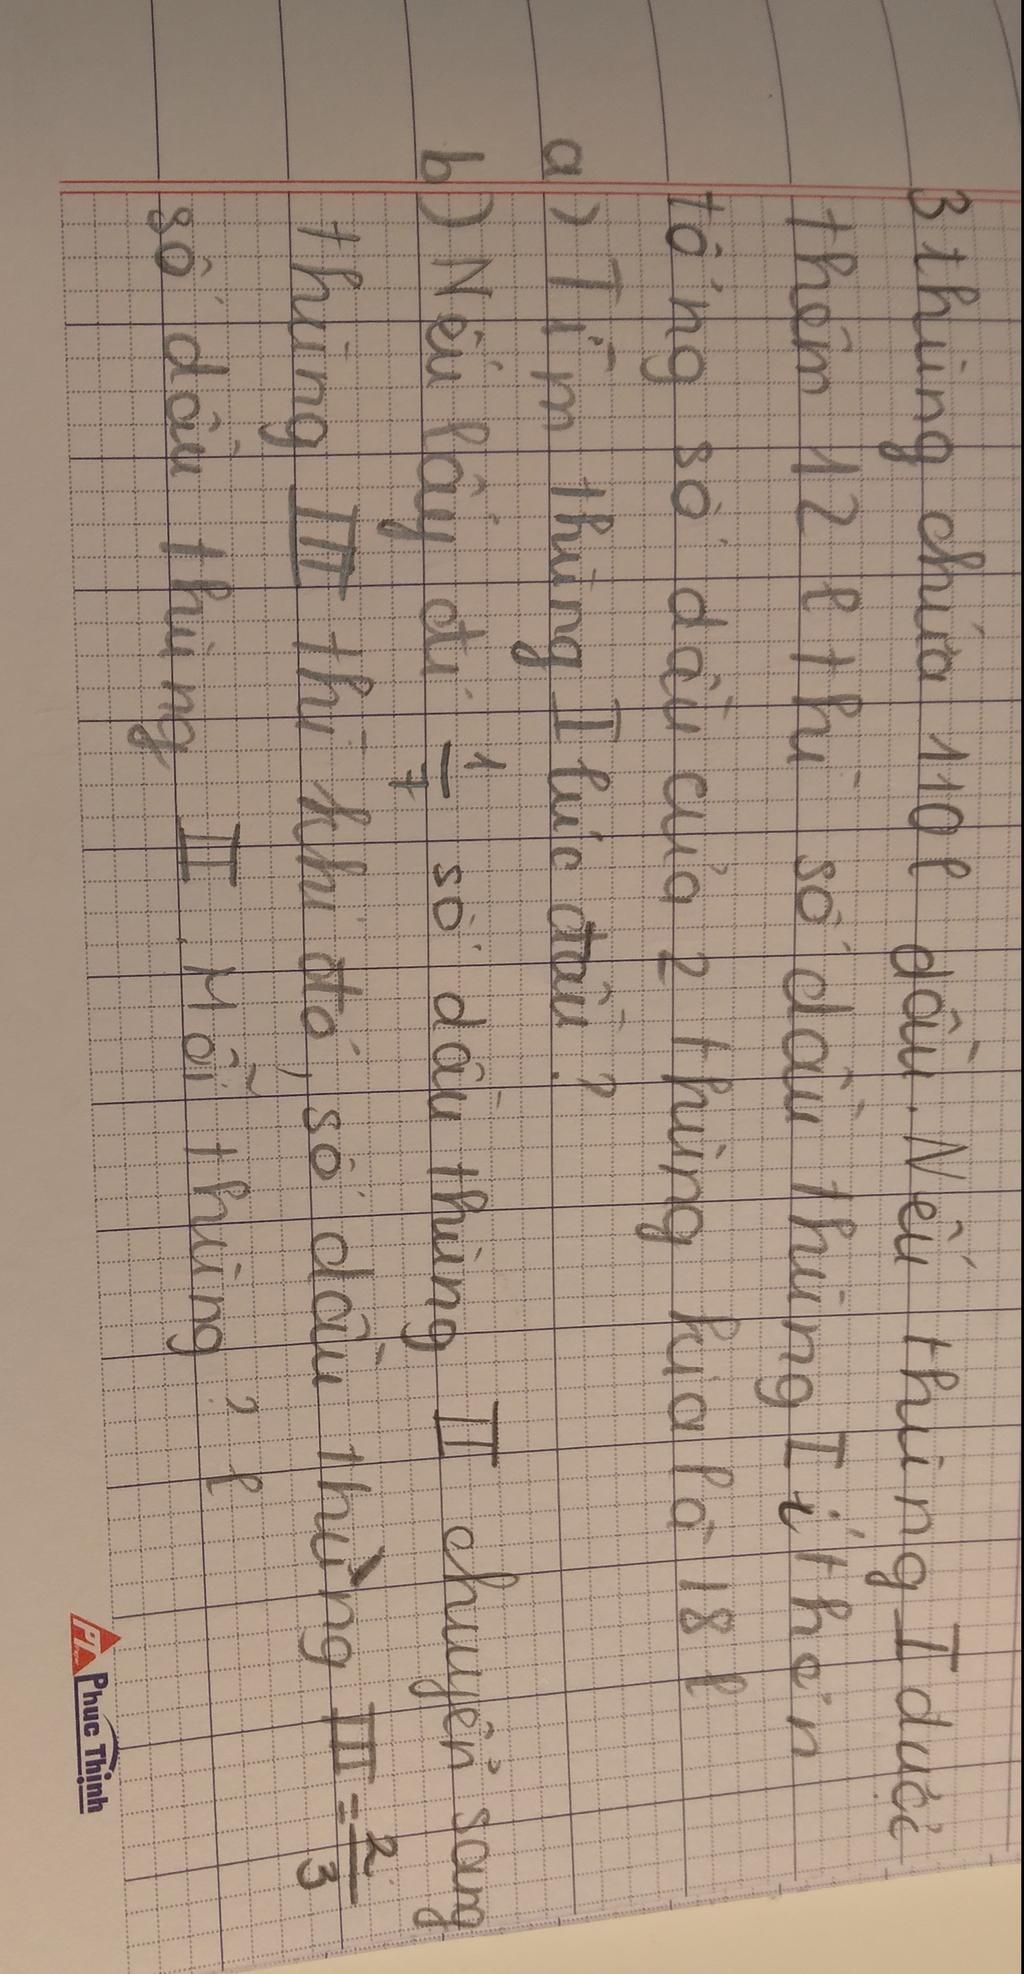 3 thùng chứa 110l dầu. Nếu thùng I được
thêm 12 l thì số dầu thùng I ít hơn
tổng số dầu của 2 thùng kia là 18 l
a) Tìm thùng I lúc đầu ?
b) Nếu lấy đi 1/7 số dầu thùng II chuyển sang
thùng III thì khi đó, số dầu thùng III = 2/3
số dầu thùng II. Mỗi thùng ? l
Phuc Thịnh